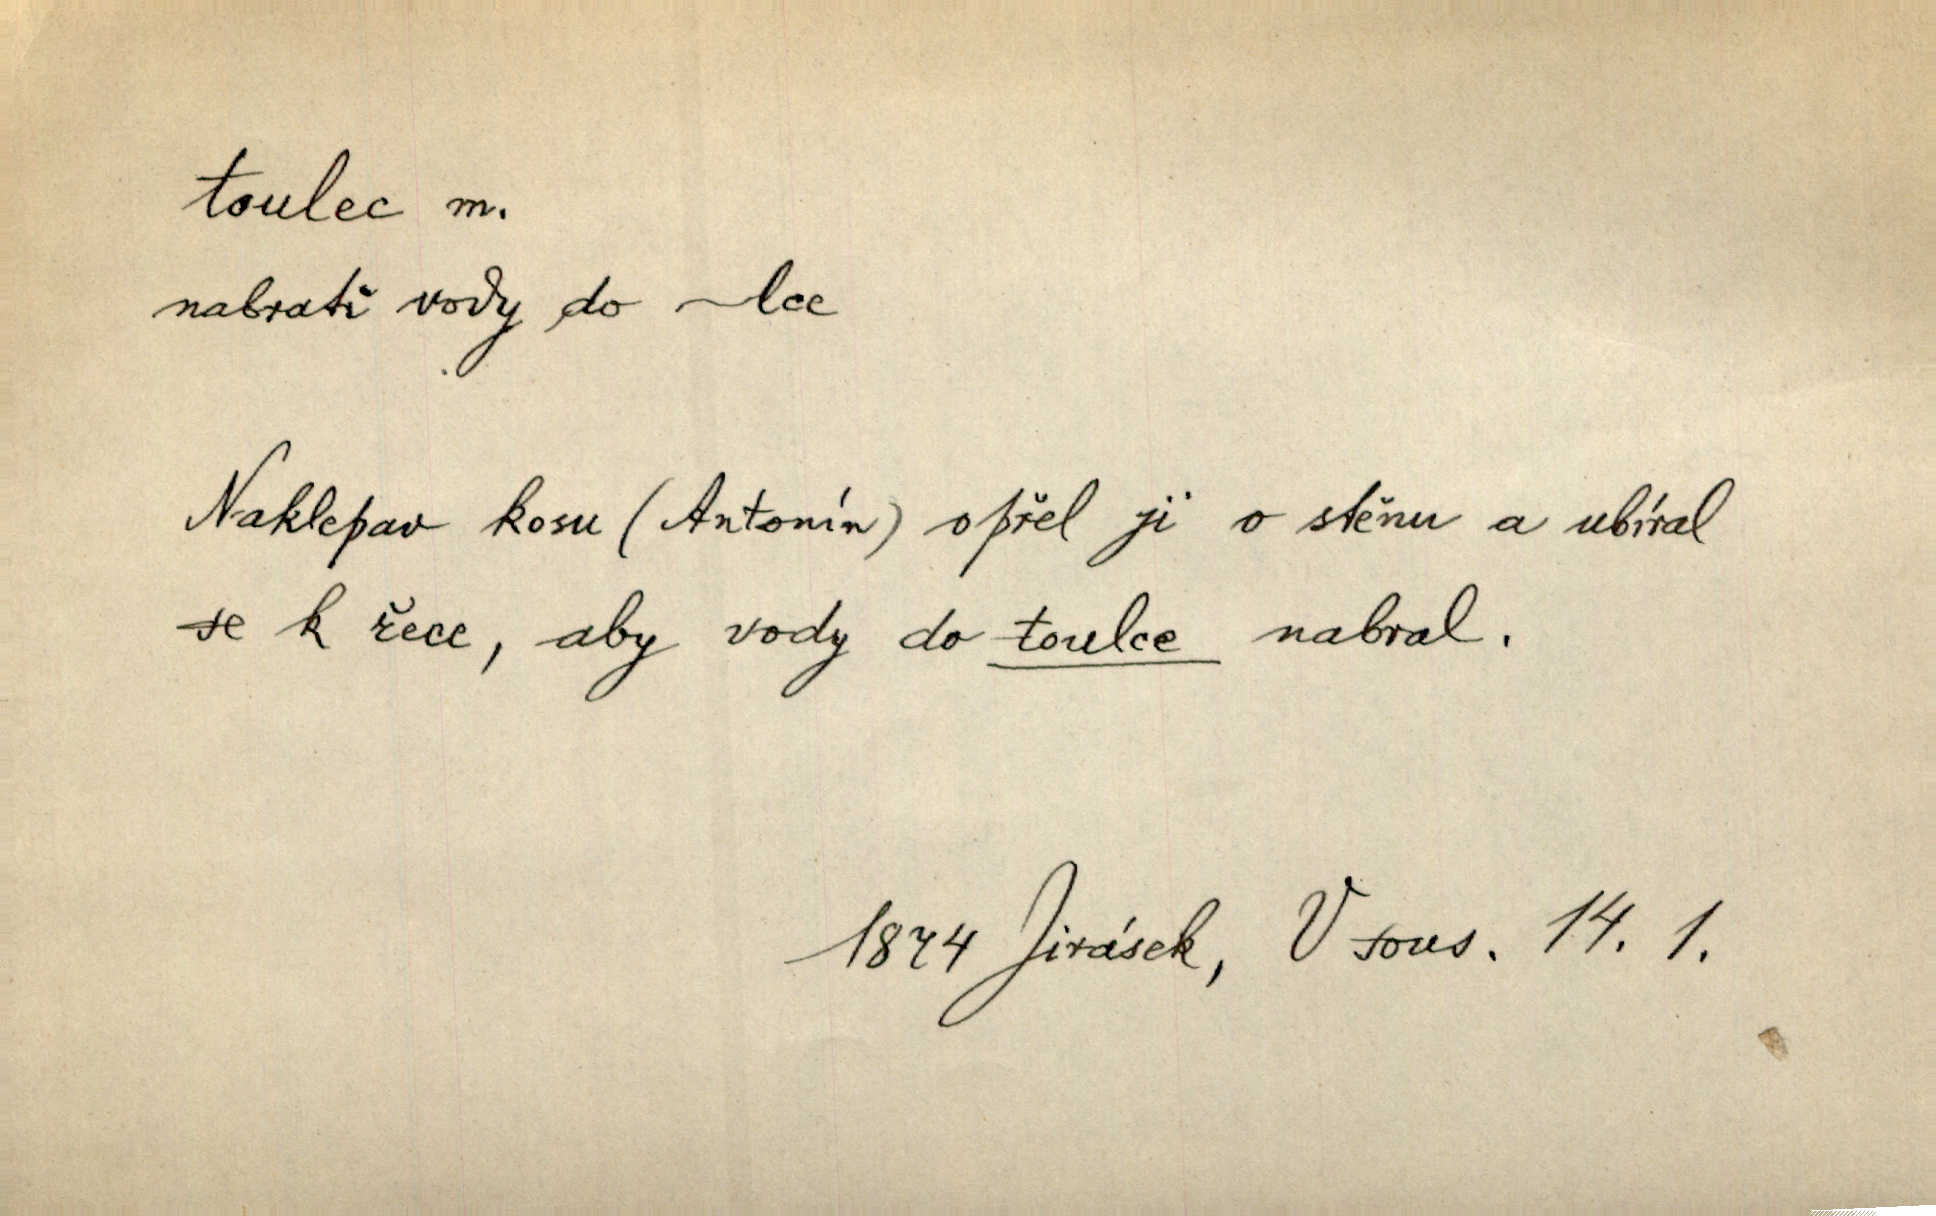 toulec m.
nabrati vody do ~lce
Naklepav kosu (Antonín) opřel ji o stěnu a ubíral
se k řece, aby vody do toulce nabral.
1874 Jirásek, V sous. 14. 1.